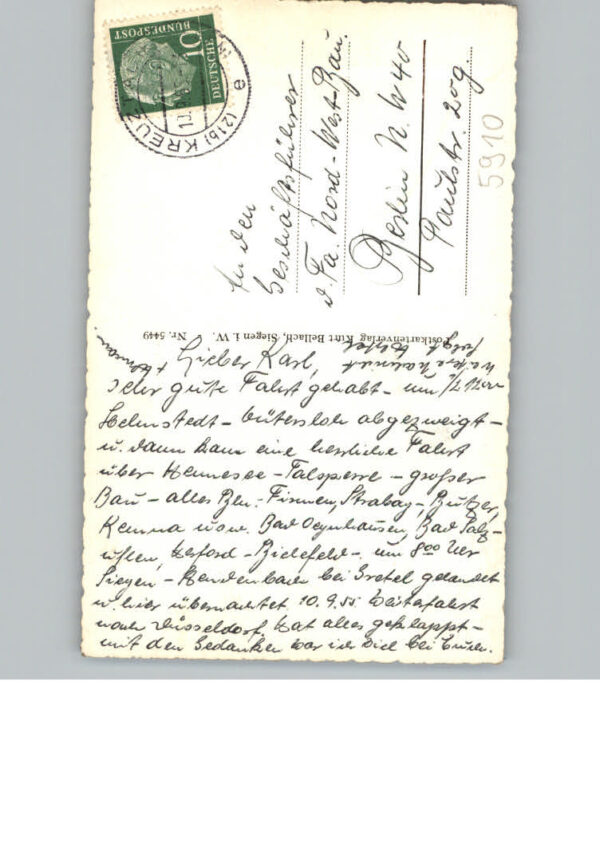 DEUTSCHE
BUNDESPOST
10
(21b) KREUZ
e
An den
Geschäftsführer
d. Fa. Nord-West-Bau.
Berlin N.W 40
Paulstr. 20g.
5910
Postkartenverlag Kurt Bellach, Siegen i. W. Nr. 5449
Lieber Karl,
Sehr gute Fahrt gehabt - um
Helmstedt - Gütersloh abgezweigt -
u. dann kam eine herrliche Fahrt
über Hennesee - Talsperre - großer
Bau - alles Bln. - Firmen, Strabag, Butzer,
Kemna usw. Bad Oeynhausen, Bad Salz-
uflen, Herford - Bielefeld - um 8 00 Uhr
Siegen - bei Gretel gelandet
u. hier übernachtet. 10.9.55 Weiterfahrt
nach Düsseldorf. Hat alles geklappt -
mit den Gedanken war ich viel bei Euch.